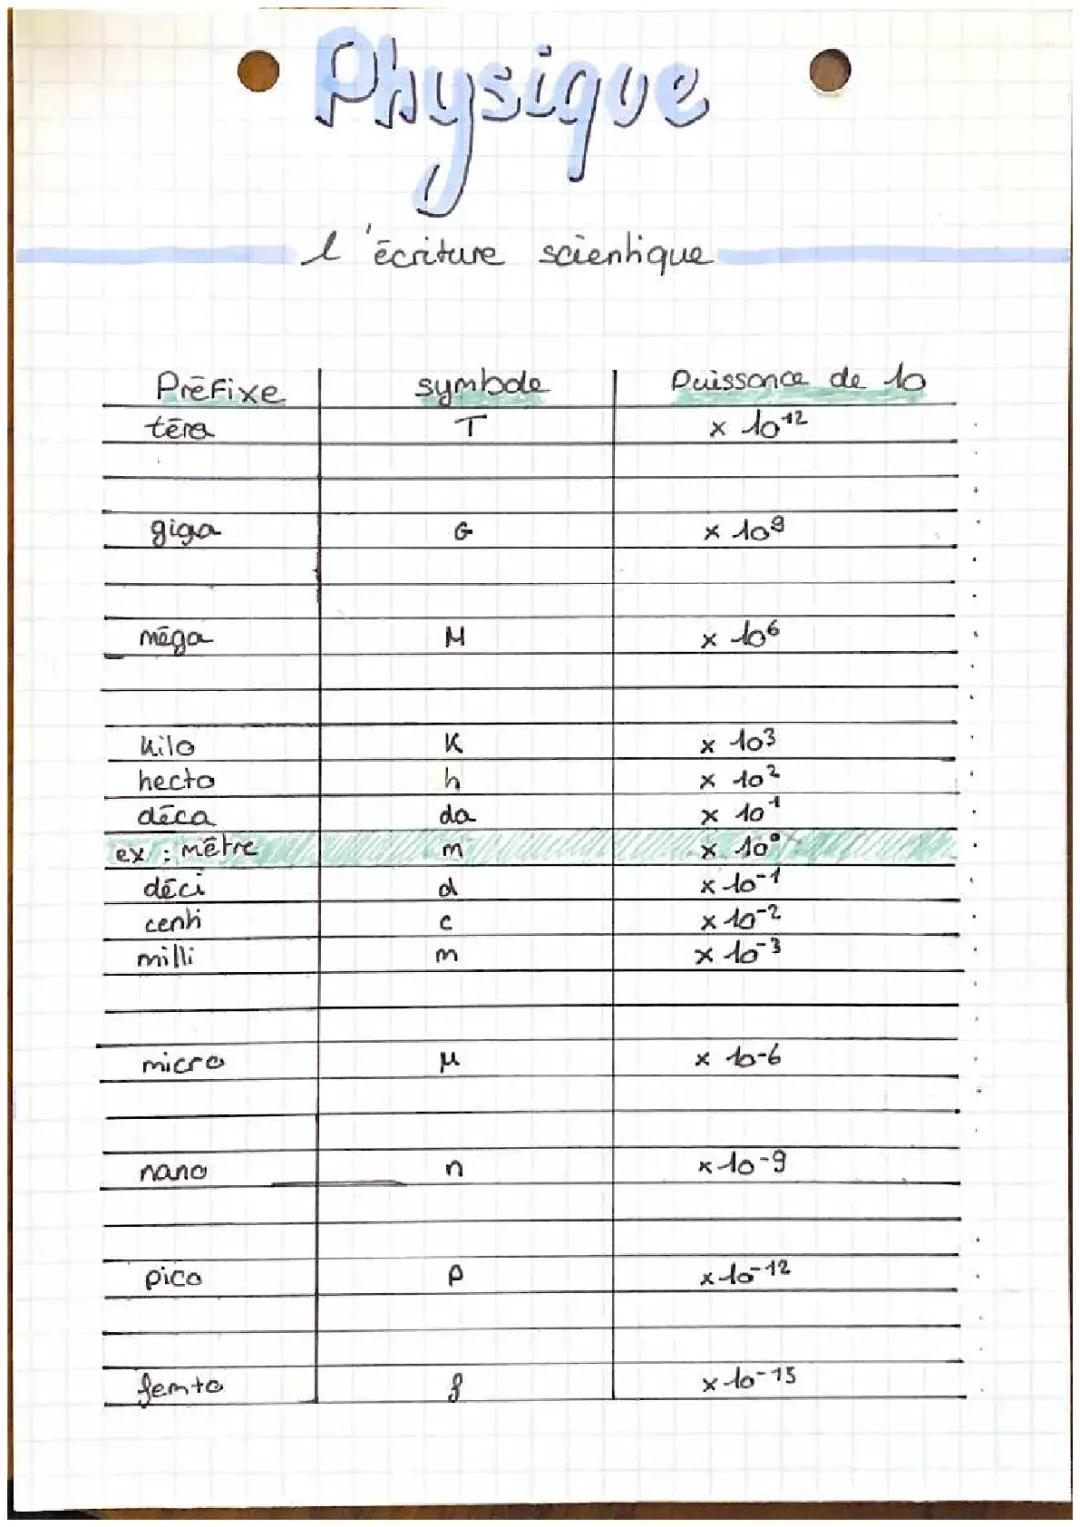 Physique
l'écriture scientique
Préfixe symbole Puissance de 10
téra T x 10¹²
giga G x 10⁹
méga M x 10⁶
kilo K x 10³
hecto h x 10²
déca da x 10¹
ex : mètre m x 10⁰
déci d x 10⁻¹
centi c x 10⁻²
milli m x 10⁻³
micro μ x 10-6
nano n x 10⁻⁹
pico p x 10⁻¹²
femto f x 10⁻¹⁵